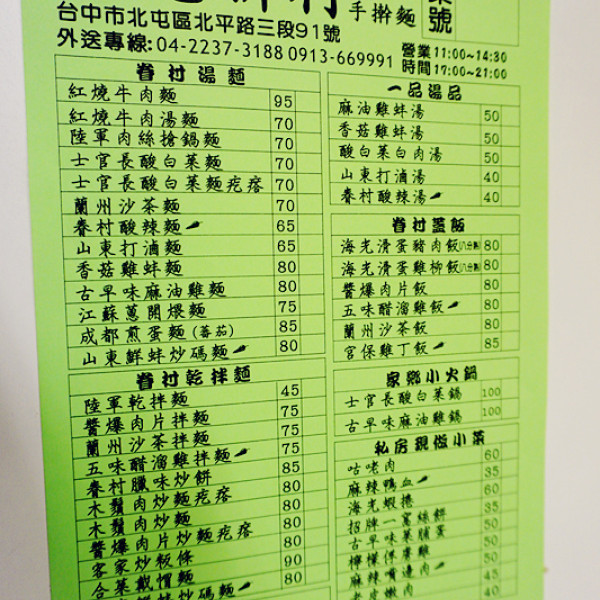 手擀麵
號
台中市北屯區北平路三段91號
外送專線:04-2237-3188 0913-669991
營業 11:00~14:30
時間 17:00~21:00
眷村湯麵
紅燒牛肉麵 95
紅燒牛肉湯麵 70
陸軍肉絲搶鍋麵 70
士官長酸白菜麵 70
士官長酸白菜麵疙瘩 70
蘭州沙茶麵 70
眷村酸辣麵 65
山東打滷麵 65
香菇雞蚌麵 80
古早味麻油雞麵 80
江蘇蔥開煨麵 75
成都煎蛋麵(蕃茄) 85
山東鮮蚌炒碼麵 80
眷村乾拌麵
陸軍乾拌麵 45
醬爆肉片拌麵 75
蘭州沙茶拌麵 75
五味醋溜雞拌麵 75
眷村臘味炒餅 85
木鬚肉炒麵疙瘩 80
木鬚肉炒麵 80
醬爆肉片炒麵疙瘩 80
客家炒粄條 90
合菜戴帽麵 80
一品湯品
麻油雞蚌湯 50
香菇雞蚌湯 50
酸白菜白肉湯 50
山東打滷湯 40
眷村酸辣湯 40
眷村蓋飯
海光滑蛋豬肉飯(八分熟) 80
海光滑蛋雞柳飯(八分熟) 80
醬爆肉片飯 80
五味醋溜雞飯 80
蘭州沙茶飯 80
宮保雞丁飯 85
家鄉小火鍋
士官長酸白菜鍋 100
古早味麻油雞鍋 100
私房現做小菜
咕咾肉 60
麻辣鴨血 35
海光蝦捲 60
招牌一窩絲餅 35
古早味菜脯蛋 50
檸檬保膚雞 50
麻辣嘴邊肉 50
老皮嫩肉 45
40